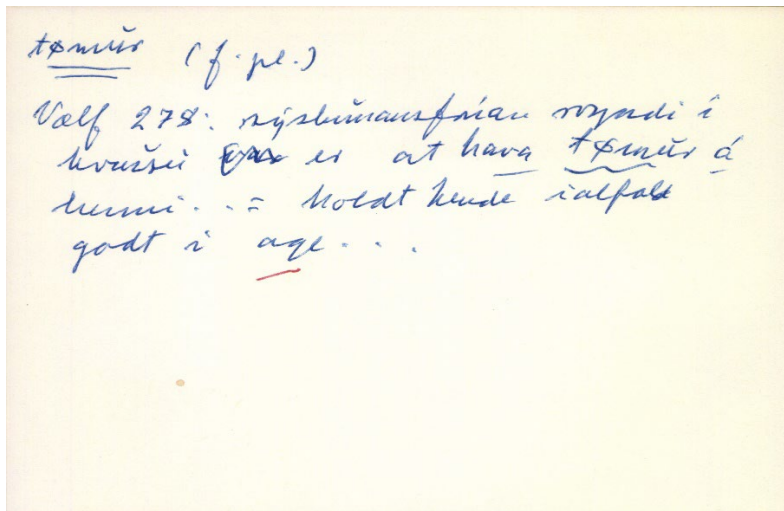 tømur (f. pl.)
Valf 278: sýslumansfrúan royndi í
er at hava tømur á
henni . . = holdt hende ialfald
godt i age . . .